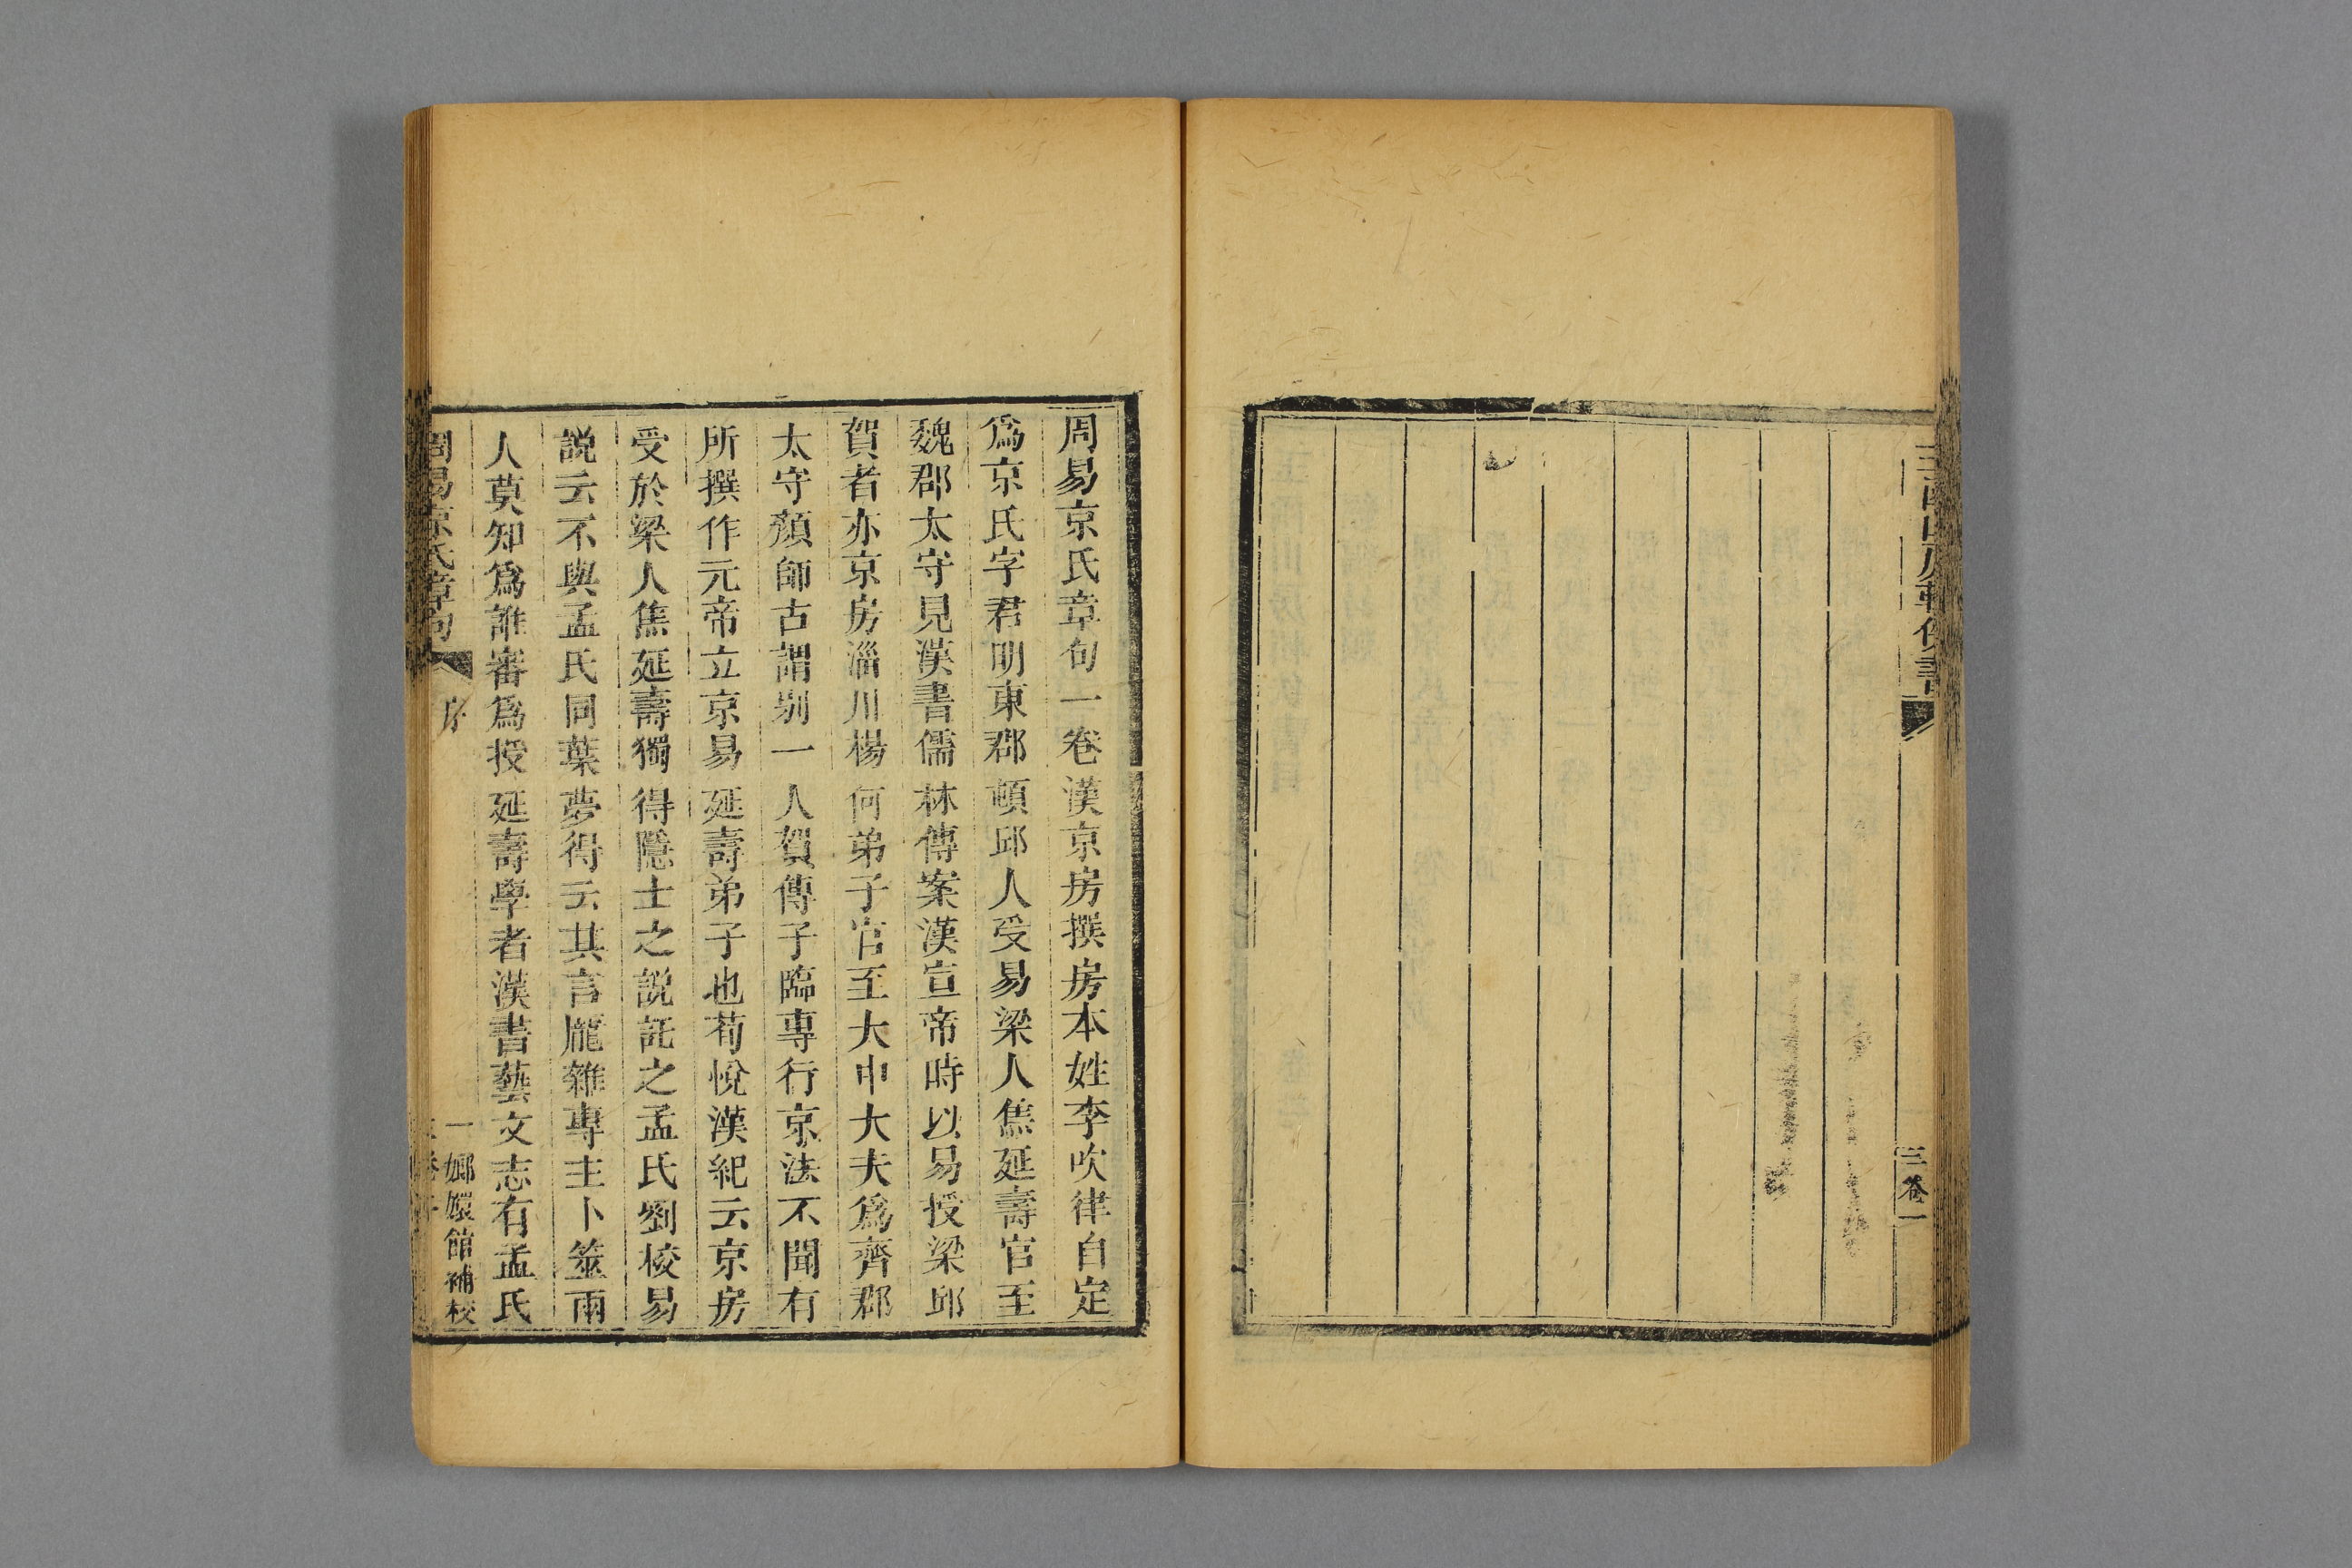 玉函山房輯佚書
三卷一
周易京氏章句一卷漢京房撰房本姓李吹律自定
爲京氏字君明東郡頓邱人受易梁人焦延壽官至
魏郡太守見漢書儒林傳案漢宣帝時以易授梁邱
賀者亦京房淄川楊何弟子官至大中大夫爲齊郡
太守顏師古謂别一人賀傳子臨專行京法不聞有
所撰作元帝立京易延壽弟子也荀悅漢紀云京房
受於梁人焦延壽獨得隱士之説託之孟氏劉校易
説云不與孟氏同葉夢得云其言龐雜專主卜筮兩
人莫知爲誰審爲授延壽學者漢書藝文志有孟氏
周易京氏章句 序
一 嫏嬛館補校